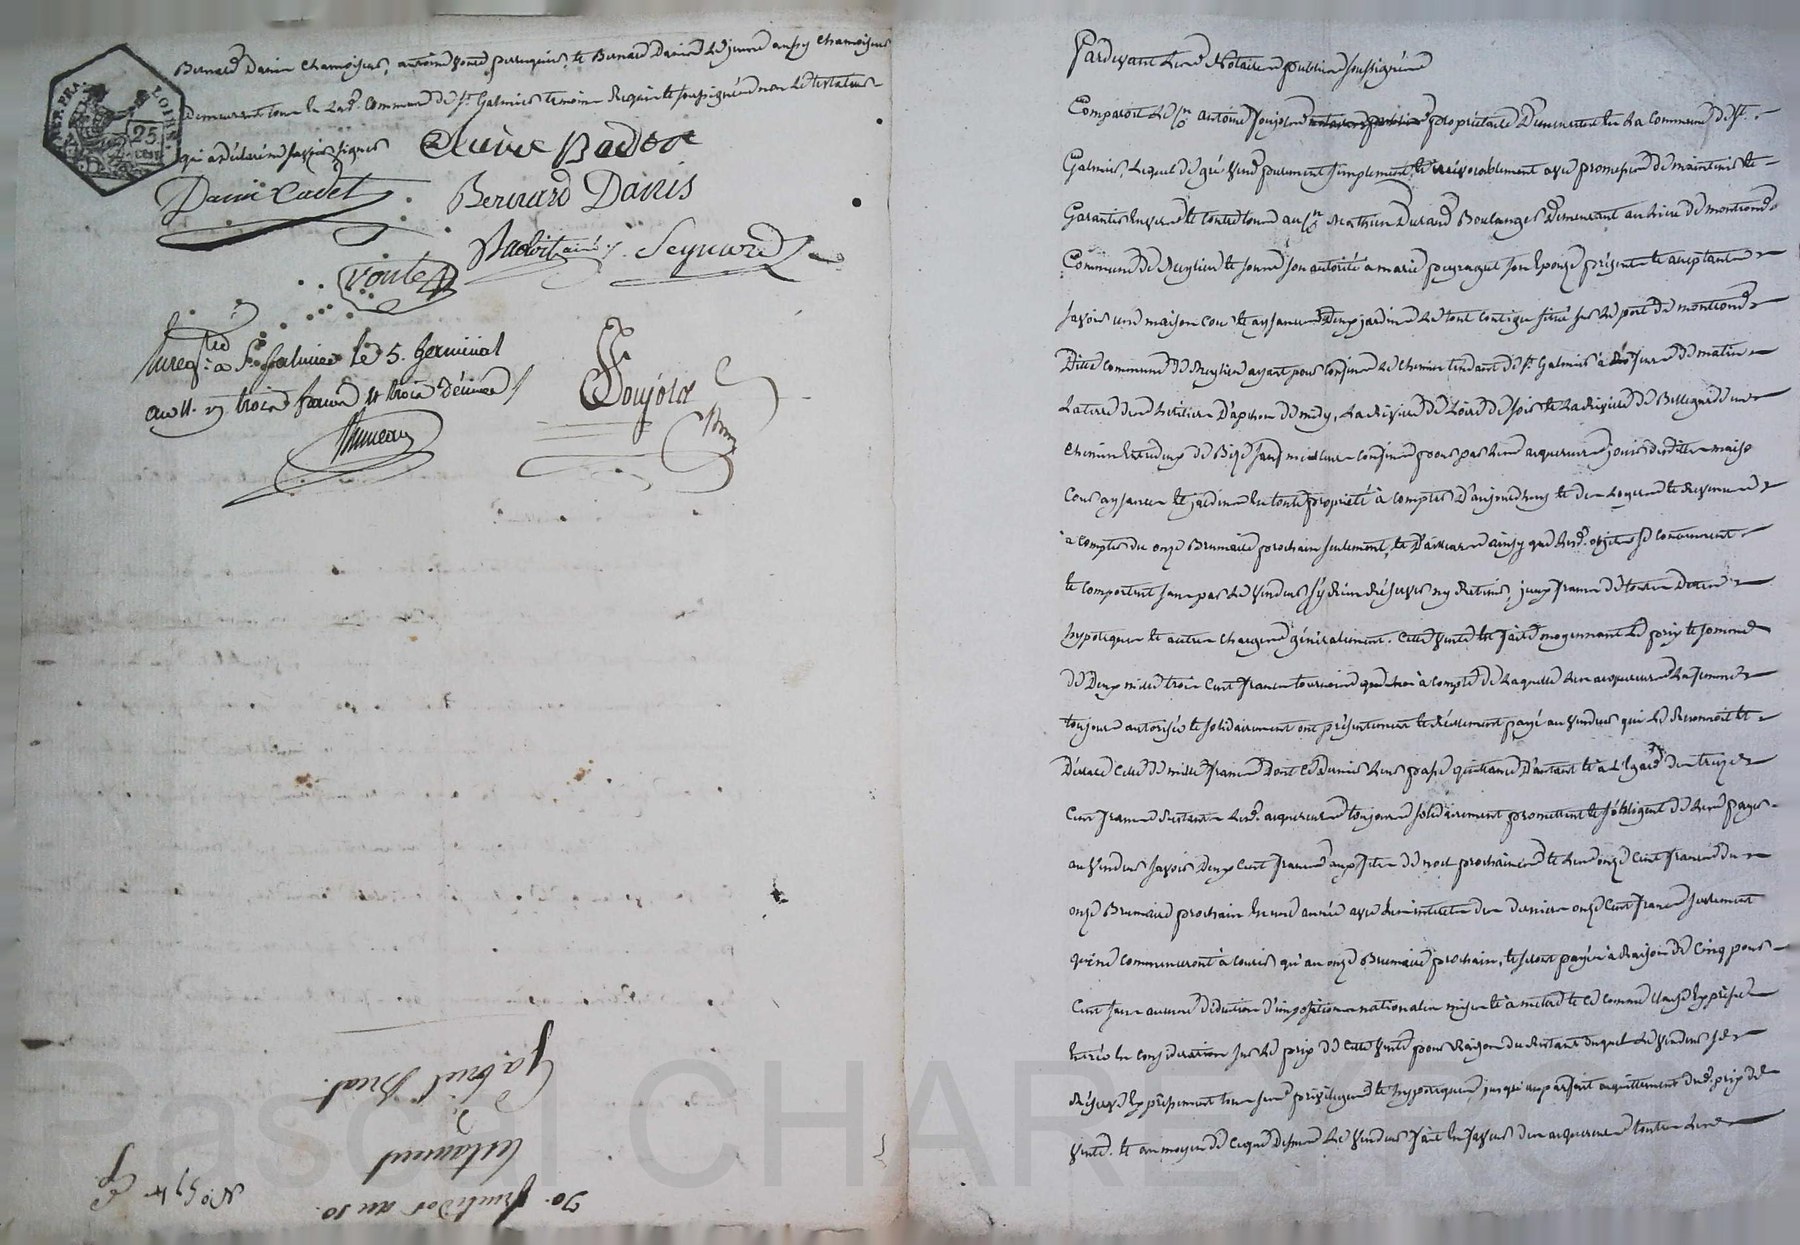 REP. FRA. LOIRE
25 CEN
Bernard Danis chamoiseur, antoine voute perruquier, et Bernard Danis le jeune aussy chamoiseur
Demeurant tous en lad. Commune de St. Galmier temoins Requis et soussignés non le testateur
qui a déclaré ne savoir signer
Danis Cadet
Bernard Danis
Seynard
voute
Enregtré à St. galmier le 5. germinal
an 11. reçu trois francs et trois décimes
Poujola
Gabriel
testament
30. fructidor an 10.
No 594
Pardevant les Notaires publics soussignés
Comparoit le sr. antoine propriétaire Demeurant en la Commune de St.
Galmier, Lequel de gré vend purement simplement et irrévocablement avec promesse de maintenir et
Garantir envers et contre tous au sr. Mathieu Durand Boulanger Demeurant au lieu de montrond
Commune de Meylieu et sous son autorité a marie son épouse présents et acceptants
savoir une maison cour et aysances Deux jardins le tout contigu situé sur le port de montrond
Dite commune de Meylieu ayant pour confins le chemin tendant de St. Galmier à de matin
La terre des héritiers D'apchon de midy, La Rivière de Loire de soir et La Rivière de Bellegarde un
chemin entredeux de Bize sauf meilleurs confins pour par les acquereurs jouir desdites maison
Cour aysances et jardins en toute propriété à compter D'aujourdhuy et des Loyers et Revenus
à compter du onze Brumaire prochain seulement, et ainsy que lesd. objets se contiennent
et comportent sans par le vendeur s'y Rien Réserver ny Retenir, jceux francs de toutes Dettes
hypotèques et autres charges généralement. Cette vente est faite moyennant le prix et somme
de Deux mille trois Cent francs tournois à compte de laquelle les acquereurs la femme
toujours autorisée et solidairement ont présentement et Réellement payé au vendeur qui le Reconnoit et
Déclare celle de mille francs Dont ce dernier leur passe quittance D'autant et à l'égard des treize
Cent francs Restants lesd. acquereurs toujours solidairement promettent et s'obligent de les payer
au vendeur savoir Deux Cent francs aux fetes de noel prochaines et les onze Cent francs du
onze Brumaire prochain en une année avec les intérêts des derniers onze Cent francs seulement
qui ne commenceront à courir qu'au onze Brumaire prochain, et seront payés à Raison de cinq pour
Cent sans aucune déduction d'impositions nationales mises et à mettre et ce comme clause expresse
entrée en considération sur le prix de cette vente pour Raison du Restant duquel le vendeur se
Réserve expressément tous ses privilèges et hypotèques jusqu'au parfait acquittement dud. prix de
vente. et au moyen de ce que Dessus le vendeur fait en faveur des acquereurs toutes les
Pascal CHAREYRON